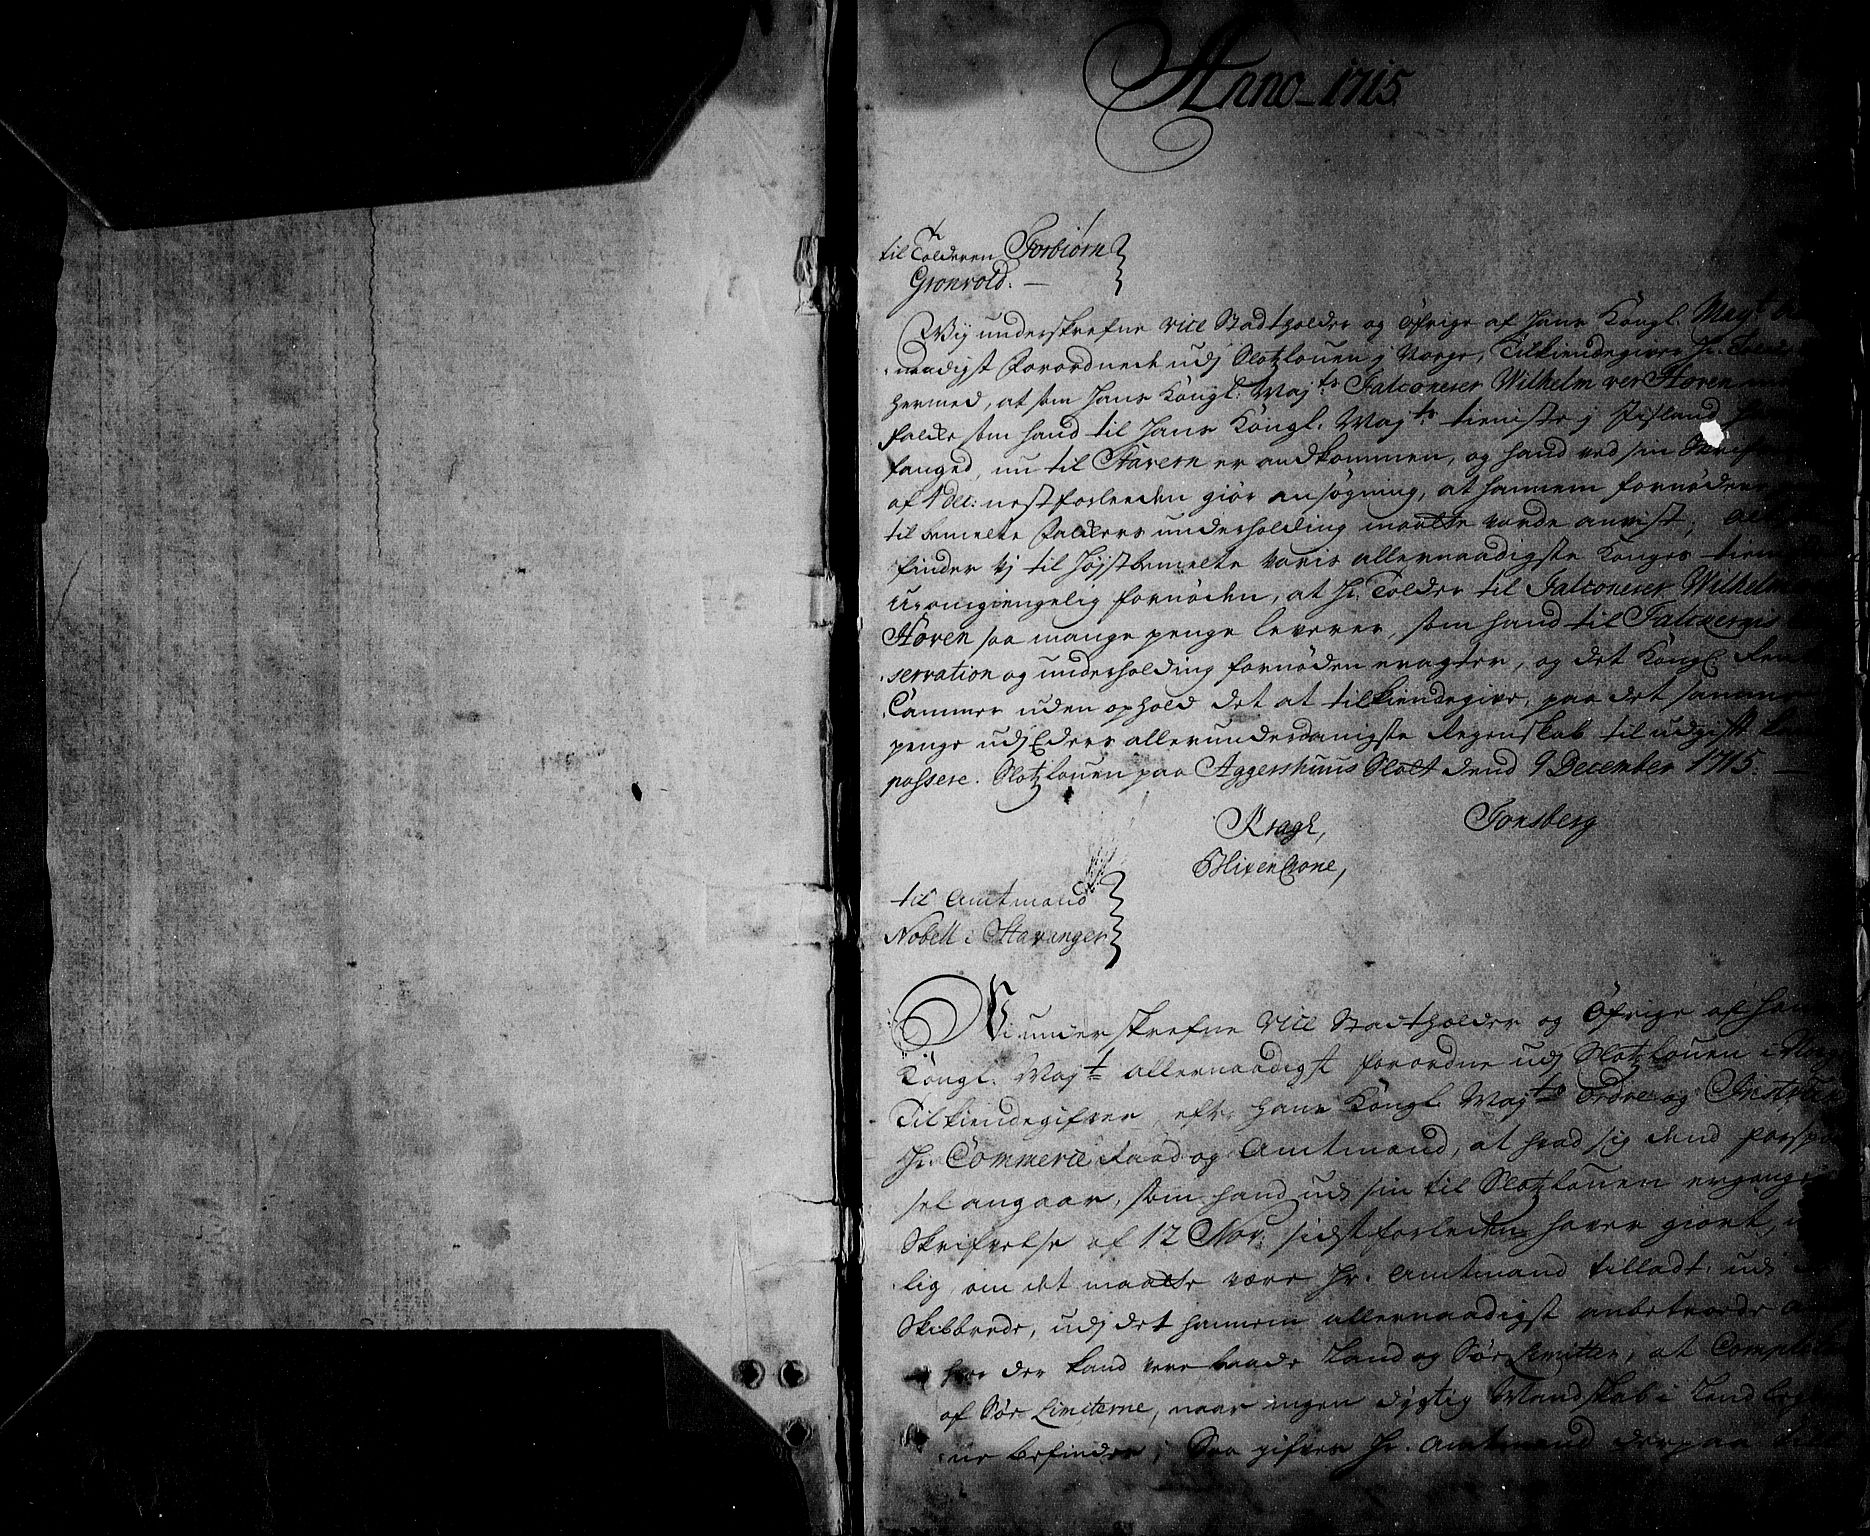 Anno 1715
til Tolderen Torbiørn
Gronvold.
Wij underskrefne vice Stadtholder og Øfrige af Hans Kongl. Mayt
naadigst Forordnede udj Slotzlouen j Norge, Tilkiendegiver Hr. Told
hermed, at som Hans Kongl: Majts Falconerer Wilhelm ver Hoven
falcke som hand til Hans Kongl. Majts tieniste j Iisland
fanged, nu til Stavern er andkommen, og hand ved sin Skrif
af 1 dec: nestforleeden giør ansøgning, at hannem fornøden
til bemelte Falckers underholding maatte vorde anvist;
finder vj til Højstbemelte voris allernaadigste Konges tien
uromgiengelig fornøden, at Hr. Tolder til Falconerer Wilhelm
Hoven saa mange penge leverer, som hand til Falckernis
servation og underholding fornøden eragter, og det Kongl. Rente
Cammer uden ophold det at tilkiendegive, paa det samme
penge udj Eders allerunderdanigste Regenskab til udgift
passere. Slotzlouen paa Aggershuus Slott dend 9 December 1715.
Kragh, Tonsberg
Blixencrone,
til Amtmand
Nobell i Stavanger
Vi underskrefne vice Stadtholder og Øfrige af Hans
Kongl. Mayt allernaadigst forordne udj Slotzlouen i Norge
Tilkiendegifver efter Hans Kongl. Mayts Ordre og Instrux
Hr. Commerce Raad og Amtmand, at hvad sig dend forspør
sel angaar, som hand udj sin til Slotzlouen ergangne
Skrifvelse af 12 Nov: sidstforleeden haver giort,
lig om det maatte være Hr. Amtmand tilladt udj
Skibbrede, udj det hannem allernaadigst anbetroede
hvor der kand være baade Land og Søe Limitter, at Complet
af Søe Limiterne, naar ingen dygtig Mandskab i Land
ne befindes; Saa gifves Hr. Amtmand derpaa